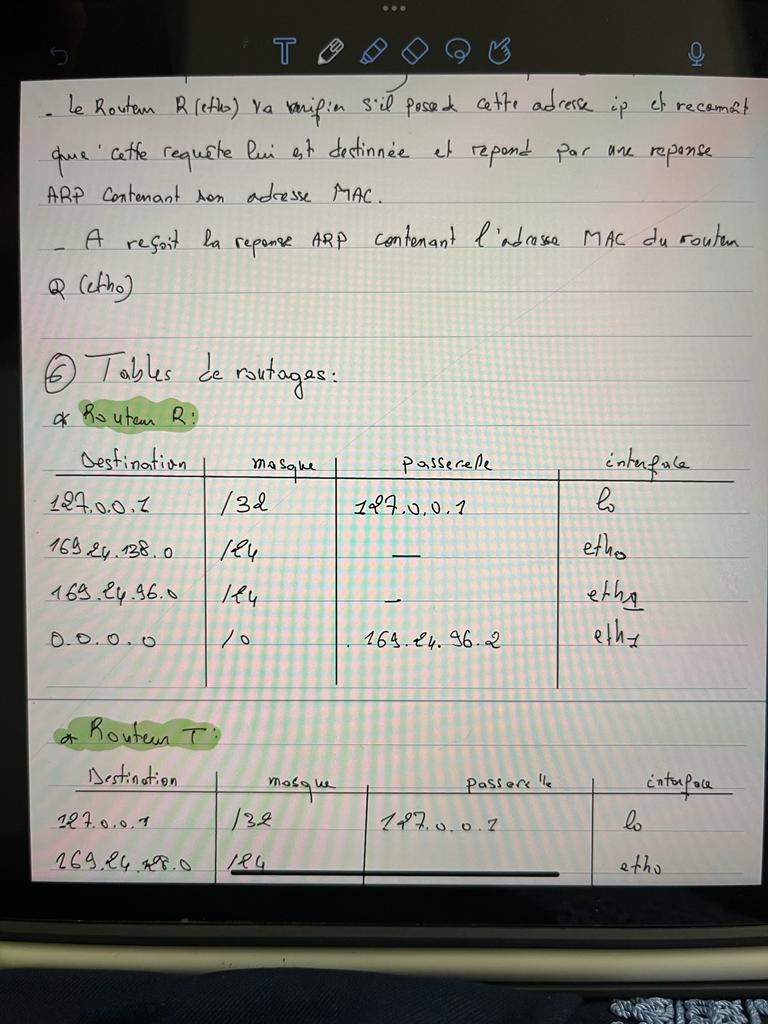 - Le Routeur R (eth0) va verifier s'il possede cette adresse ip et reconnaît
que cette requête lui est destinnée et repond par une reponse
ARP contenant son adresse MAC.
- A reçoit la reponse ARP contenant l'adresse MAC du routeur
R (eth0)
⑥ Tables de routages:
* Routeur R:
Destination masque passerelle interface
127.0.0.1 /32 127.0.0.1 lo
169.24.138.0 /24 — eth0
169.24.96.0 /24 — eth1
0.0.0.0 /0 169.24.96.2 eth1
* Routeur T:
Destination masque passerelle interface
127.0.0.1 /32 127.0.0.1 lo
/24 eth0